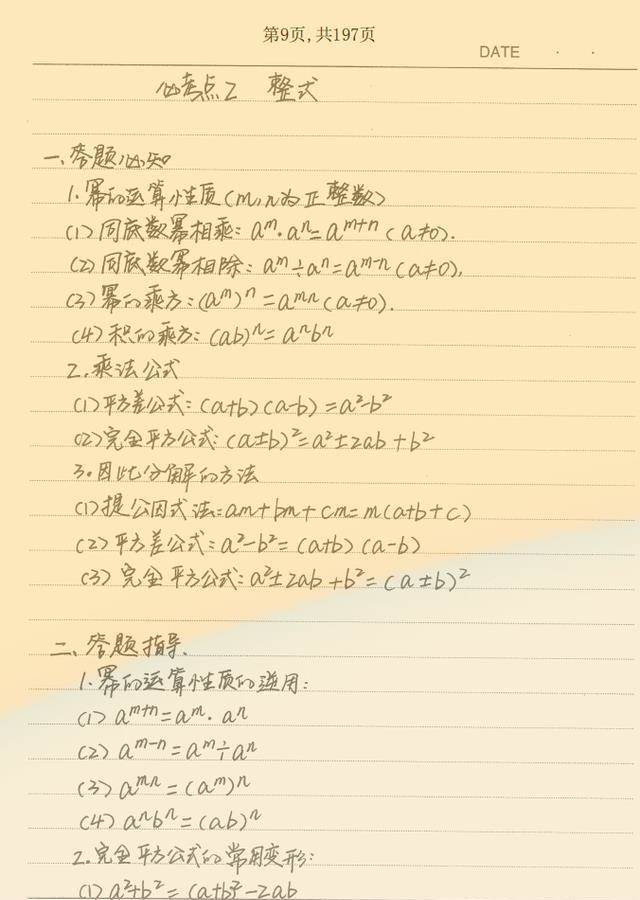 第9页,共197页
DATE · ·
必考点2 整式
一、答题必知
1.幂的运算性质(m,n为正整数)
(1)同底数幂相乘:aᵐ·aⁿ=aᵐ⁺ⁿ(a≠0).
(2)同底数幂相除:aᵐ÷aⁿ=aᵐ⁻ⁿ(a≠0),
(3)幂的乘方:(aᵐ)ⁿ=aᵐⁿ(a≠0).
(4)积的乘方:(ab)ⁿ=aⁿbⁿ
2.乘法公式
(1)平方差公式:(a+b)(a-b)=a²-b²
(2)完全平方公式:(a±b)²=a²±2ab+b²
3.因此分解的方法
(1)提公因式法:am+bm+cm=m(a+b+c)
(2)平方差公式:a²-b²=(a+b)(a-b)
(3)完全平方公式:a²±2ab+b²=(a±b)²
二、答题指导.
1.幂的运算性质的逆用:
(1)aᵐ⁺ⁿ=aᵐ·aⁿ
(2)aᵐ⁻ⁿ=aᵐ÷aⁿ
(3)aᵐⁿ=(aᵐ)ⁿ
(4)aⁿbⁿ=(ab)ⁿ
2.完全平方公式的常用变形:
(1)a²+b²=(a+b)²-2ab